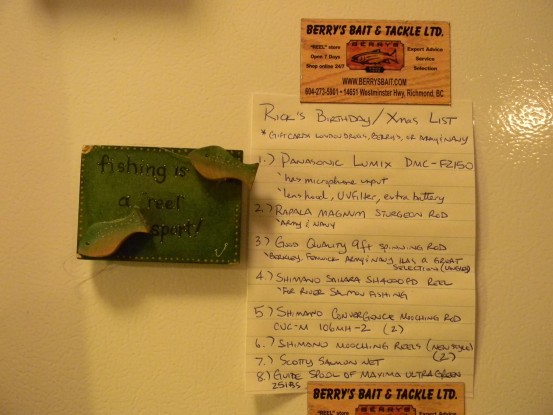 BERRY'S BAIT & TACKLE LTD.
"REEL" store
Open 7 Days
Shop online 24/7
BERRYS
Expert Advice
Service
Selection
WWW.BERRYSBAIT.COM
604-273-5901 • 14651 Westminster Hwy, Richmond, BC
fishing is
a 'reel'
sport!
RICK'S BIRTHDAY/XMAS LIST
* GIFTCARDS LONDON DRUGS, BERRY'S, OR ARMY & NAVY
1.) PANASONIC LUMIX DMC-FZ150
*has microphone input
*lens hood, UV filter, extra battery
2.) RAPALA MAGNUM STURGEON ROD
*ARMY & NAVY
3.) GOOD QUALITY 9ft SPINNING ROD
*BERKLEY, FENWICK ARMY & NAVY HAS A GREAT
SELECTION (LANGLEY)
4.) SHIMANO SAHARA REEL
*FOR RIVER SALMON FISHING
5.) SHIMANO CONVERGENCE MOOCHING ROD
CVC-M 106MH-2 (2)
6.) SHIMANO MOOCHING REELS (NEW STYLE)
(2)
7.) SCOTTY SALMON NET
8.) GUIDE SPOOL OF MAXIMA ULTRAGREEN
25lbs
BERRY'S BAIT & TACKLE LTD.
"REEL" store
BERRYS
Expert Advice